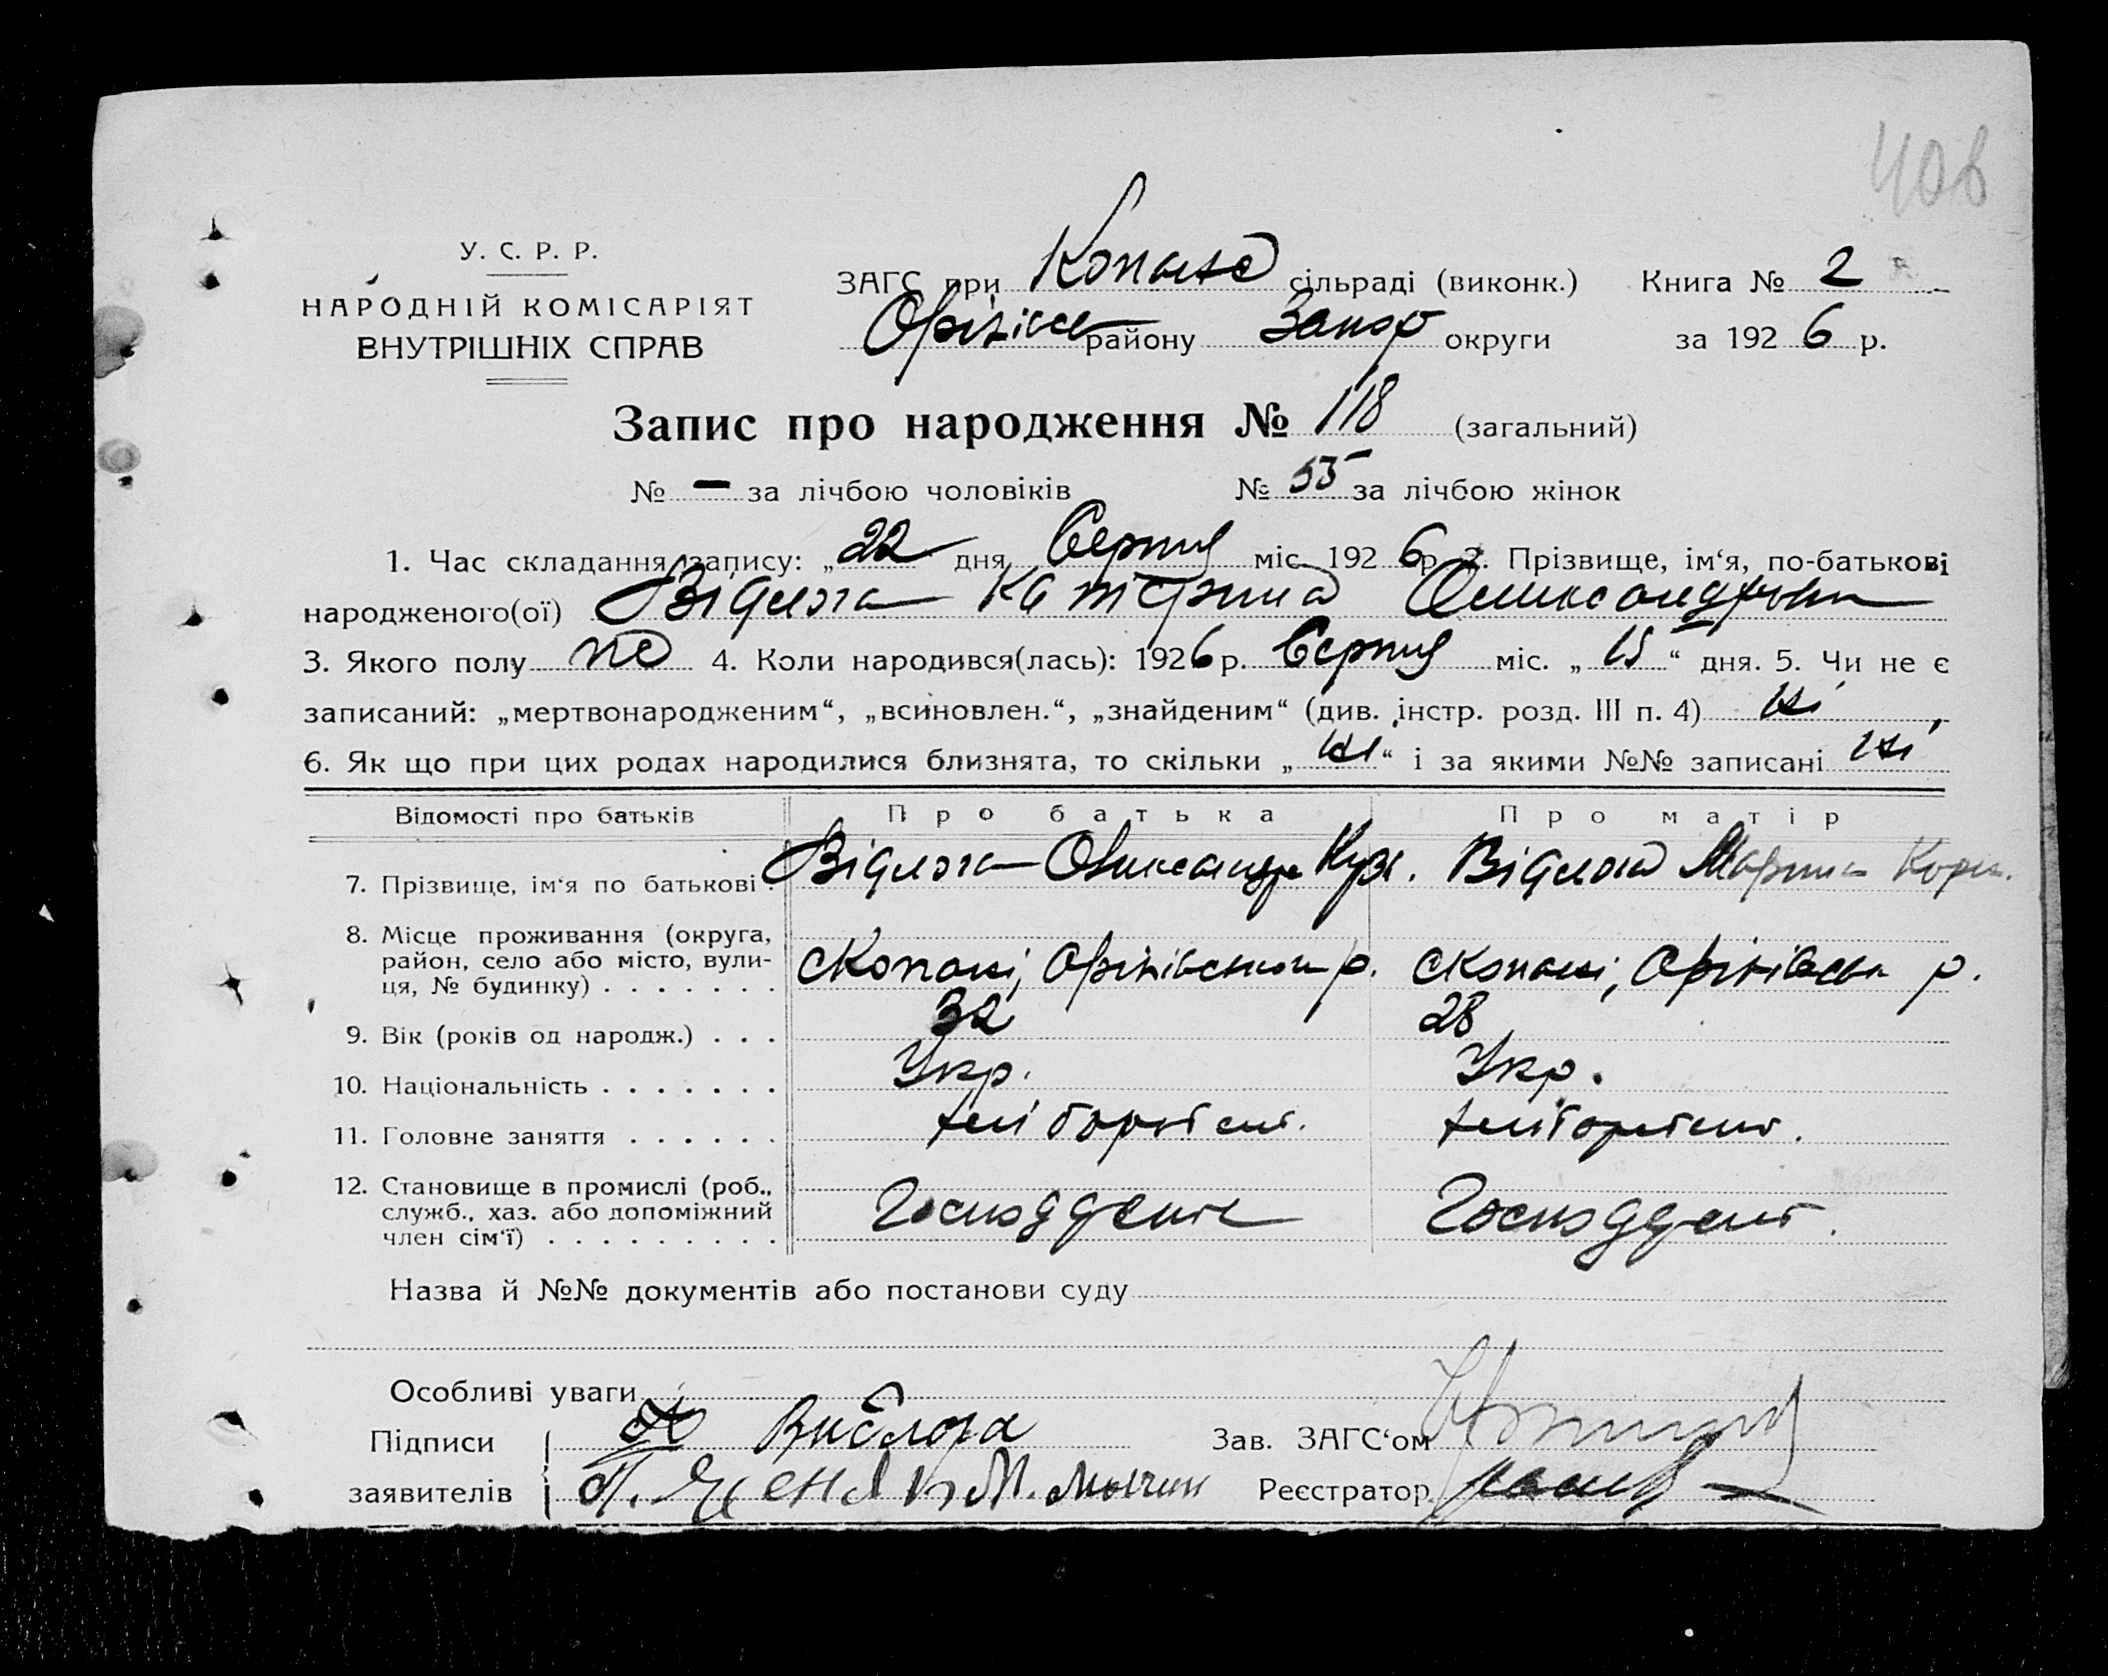 408
У. С. Р. Р.
НАРОДНІЙ КОМІСАРІЯТ
ВНУТРІШНІХ СПРАВ
ЗАГС при Копане сільраді (виконк.) Книга № 2
Оріхівськ району Запор округи за 1926 р.
Запис про народження № 118 (загальний)
№ — за лічбою чоловіків № 55 за лічбою жінок
1. Час складання запису: „22 дня Серпня міс. 1926 р. 2. Прізвище, ім‘я, по-батькові
народженого(ої) Відмога Катерина Олександрівна
3. Якого полу же 4. Коли народився(лась): 1926 р. Серпня міс. „15“ дня. 5. Чи не є
записаний: „мертвонародженим“, „всиновлен.“, „знайденим“ (див. інстр. розд. III п. 4) ні
6. Як що при цих родах народилися близнята, то скільки „ні“ і за якими №№ записані ні
Відомості про батьків Про батька Про матір
7. Прізвище, ім‘я по батькові. Відмога Олександр Куз. Відмога Марина Корн.
8. Місце проживання (округа,
район, село або місто, вули-
ця, № будинку) . . . . . . . с Копані, Оріхівськ р. с Копані, Оріхівськ р.
9. Вік (років од народж.) . . . 32 28
10. Національність . . . . . . . Укр. Укр.
11. Головне заняття . . . . . . хліборобств. хліборобств.
12. Становище в промислі (роб.,
служб., хаз. або допоміжний
член сім‘ї) . . . . . . . . .
Назва й №№ документів або постанови суду
Особливі уваги
Підписи
заявителів
Зав. ЗАГС‘ом
Реєстратор